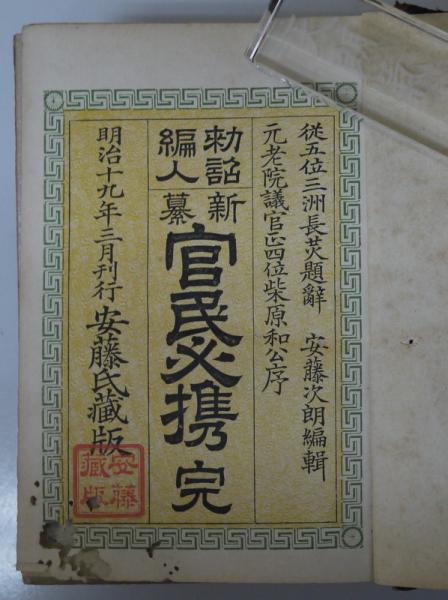 従五位三洲長炗題辭 安藤次朗編輯
元老院議官正四位柴原和公序
勅詔
編入
新纂
官民必携 完
明治十九年三月刊行 安藤氏藏版
安藤
藏版